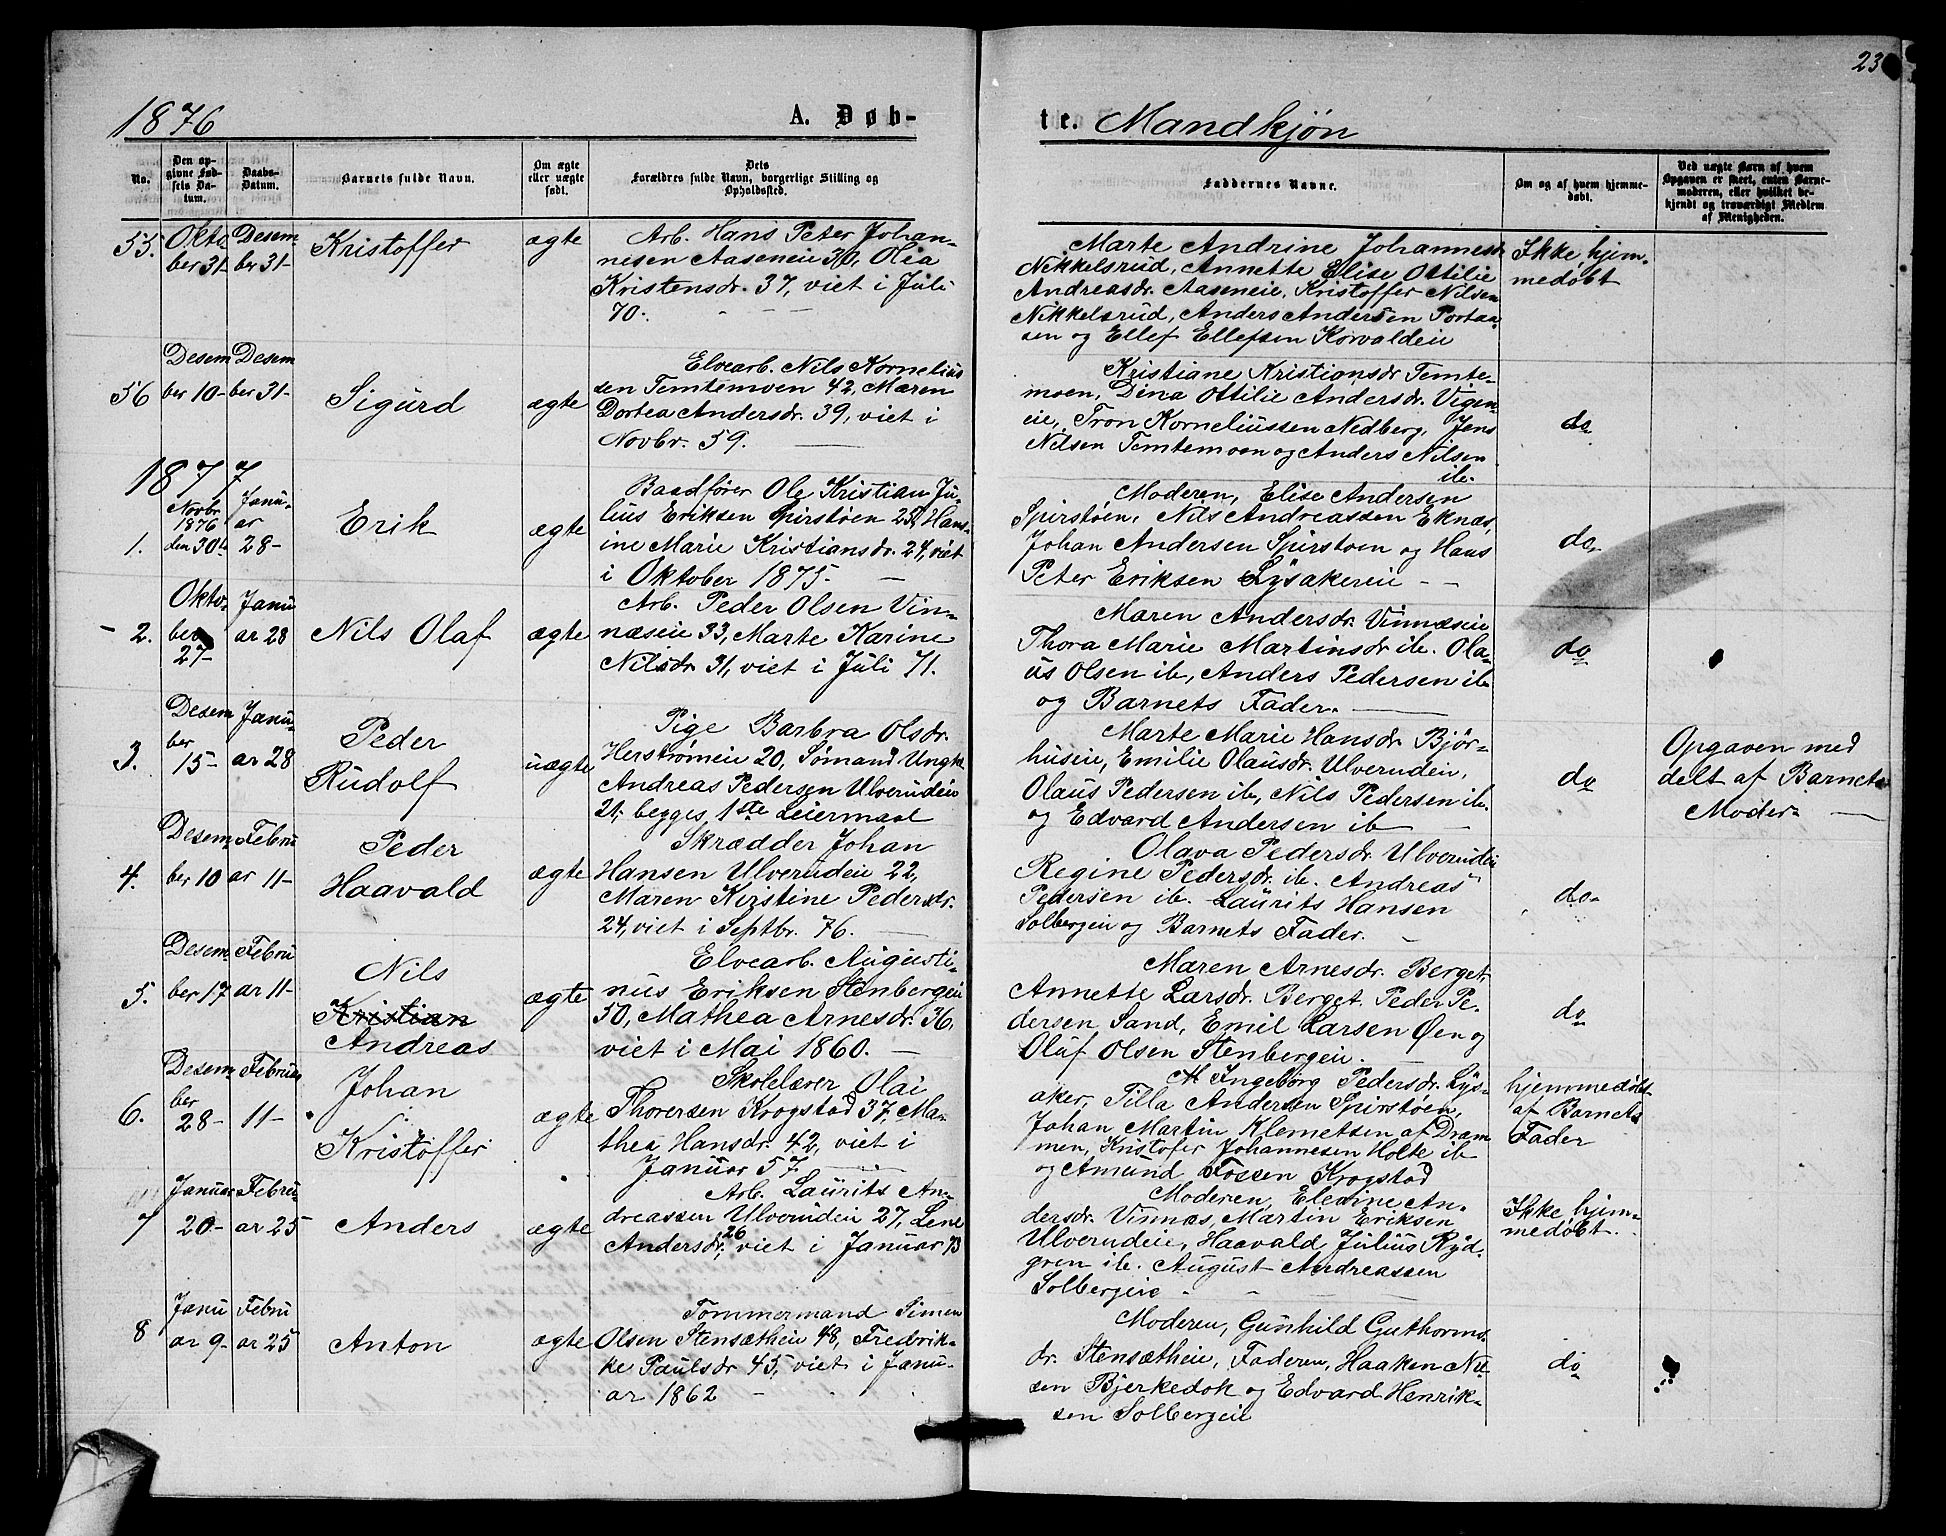 23
1876
A. Døb-
te. Mandkjøn
No.
Den op-
givne Fød-
sels Da-
tum.
Daabs-
Datum.
Barnets fulde Navn.
Om ægte
eller uægte
født.
Dets
Forældres fulde Navn, borgerlige Stilling og
Opholdssted.
Faddernes Navne.
Om og af hvem hjemme-
døbt.
Ved uægte Børn af hvem
Opgaven er skeet, enten Barne-
moderen, eller hvilket be-
kjendt og troværdigt Medlem
af Menigheden.
55.
Okto
ber 31-
Desem
ber 31-
Kristoffer
ægte
Arb. Hans Peter Johan-
nesen Aaseneie 30, Olia
Kristensdr. 37, viet i Juli
70.
Marte Andrine Johannesdr
Nikkelsrud, Annette Elise Ottilie
Andreasdr. Aaseneie, Kristoffer Nilsen
Nikkelsrud, Anders Andersen Portaa-
sen og Ellef Ellefsen Korvaldeie
Ikke hjem-
medøbt
56
Desem
ber 10-
Desem
ber 31-
Sigurd
ægte
Elvearb. Nils Kornelius
sen Temtemoen 42, Maren
Dortea Andersdr. 39, viet i
Novbr. 59.
Kristiane Kristiansdr Temte-
moen, Dina Ottilie Andersdr. Vigen-
eie, Tron Korneliussen Nedberg, Jens
Nilsen Temtemoen og Anders Nilsen
ib.
do
1877
1.
Novbr.
1876
den 30te
Janu-
ar
28-
Erik
ægte
Baadfører Ole Kristian Ju-
lius Eriksen Spirstøen 25, Hans-
ine Marie Kristiansdr. 24, viet
i Oktober 1875.
Moderen, Elise Andersen
Spirstøen, Nils Andreassen Eknæs,
Johan Andersen Spirstøen og Hans
Peter Eriksen Lysakereie
do
2.
Okto-
ber
27-
Janu
ar 28
Nils Olaf
ægte
Arb. Peder Olsen Vin-
næseie 33, Marte Karine
Nilsdr. 31, viet i Juli 71.
Maren Andersdr. Vinnæseie
Thora Marie Martinsdr ib. Ola-
us Olsen ib, Anders Pedersen ib
og Barnets Fader.
do
3.
Desem
ber
15-
Janu-
ar 28
Peder
Rudolf
uægte
Pige Barbra Olsdr.
Herstrømeie 20, Sømand Ungk
Andreas Pedersen Ulverudeie
21, begges 1ste Leiermaal
Marte Marie Hansdr. Bjør-
huseie, Emilie Olausdr. Ulverudeie,
Olaus Pedersen ib, Nils Pedersen ib.
og Edvard Andersen ib
do
Opgaven med
delt af Barnets
Moder
4.
Desem
ber 10
Febru
ar 11-
Peder
Haavald
ægte
Skrædder Johan
Hansen Ulverudeie 22,
Maren Kirstine Pedersdr.
24, viet i Septbr. 76.
Olava Pedersdr. Ulverudeie
Regine Pedersdr. ib. Andreas
Pedersen ib. Laurits Hansen
Solbergeie og Barnets Fader.
do
5.
Desem
ber 17
Febru
ar 11-
Nils
Kristian
Andreas
ægte
Elvearb. Augusti-
nus Eriksen Stenbergeie
50, Mathea Arnesdr. 36,
viet i Mai 1860.
Maren Arnesdr. Berget,
Annette Larsdr. Berget. Peder Pe-
dersen Sand, Emil Larsen Øen og
Oluf Olsen Stenbergeie.
do
6.
Desem-
ber
28-
Februar
11-
Johan
Kristoffer
ægte
Skolelærer Olai
Thoresen Krogstad 37, Ma-
thea Hansdr. 42, viet i
Januar 57
M Ingeborg Pedersdr. Lys-
aker, Tilla Andersen Spirstøen,
Johan Martin Klemetsen af Dram
men, Kristofer Johannesen Holte ib
og Amund Fossen Krogstad
hjemmedøbt
af Barnets
Fader
7
Januar
20-
Febru
ar 25
Anders
ægte
Arb. Laurits An-
dreassen Ulverudeie 27, Lene
Andersdr. 26, viet i Januar 73
Moderen, Eledine An-
dersdr. Vinnæs, Martin Eriksen
Ulverudeie, Haavald Julius Ryd-
gren ib. August Andreassen
Solbergeie
Ikke hjem-
medøbt.
8
Janu
ar 9-
Febru
ar 25
Anton
ægte
Tømmermand Simen
Olsen Stensætheie 48, Fredrik-
ke Paulsdr 45, viet i Janu-
ar 1862
Moderen, Gunhild Guthorms-
dr. Stensætheie, Faderen, Haaken Nil-
sen Bjerkedok og Edvard Henrik-
sen Solbergeie
do